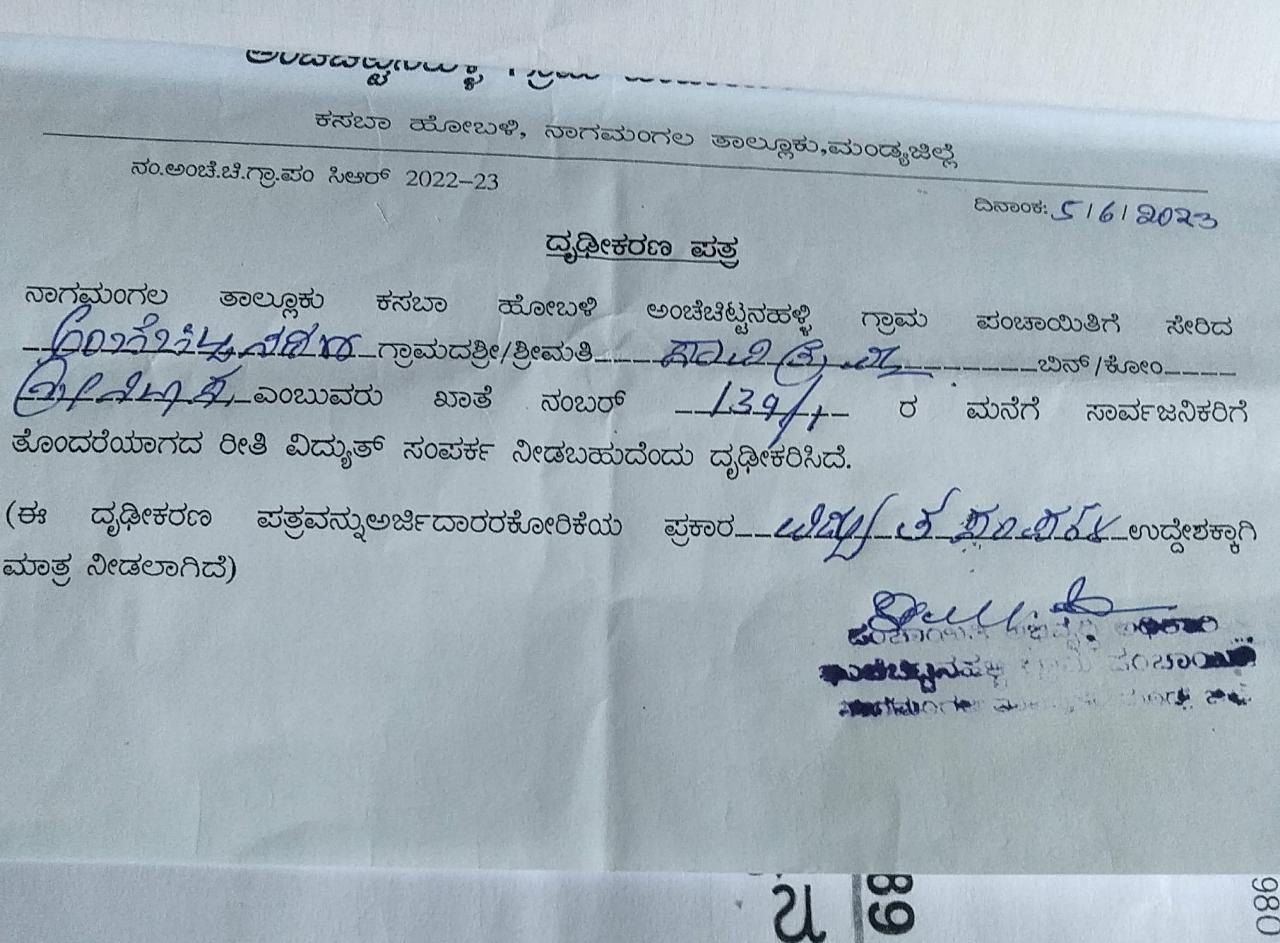 ಕಸಬಾ ಹೋಬಳಿ, ನಾಗಮಂಗಲ ತಾಲ್ಲೂಕು,ಮಂಡ್ಯಜಿಲ್ಲೆ
ನಂ.ಅಂಚೆ.ಚಿ.ಗ್ರಾ.ಪಂ ಸಿಆರ್ 2022-23
ದಿನಾಂಕ: 5/6/2023
ದೃಢೀಕರಣ ಪತ್ರ
ನಾಗಮಂಗಲ ತಾಲ್ಲೂಕು ಕಸಬಾ ಹೋಬಳಿ ಅಂಚೆಚಿಟ್ಟನಹಳ್ಳಿ ಗ್ರಾಮ ಪಂಚಾಯಿತಿಗೆ ಸೇರಿದ
ಗ್ರಾಮದಶ್ರೀ/ಶ್ರೀಮತಿ ಸಾವಿತ್ರಮ್ಮ ಬಿನ್/ಕೋಂ
ಎಂಬುವರು ಖಾತೆ ನಂಬರ್ 139/1 ರ ಮನೆಗೆ ಸಾರ್ವಜನಿಕರಿಗೆ
ತೊಂದರೆಯಾಗದ ರೀತಿ ವಿದ್ಯುತ್ ಸಂಪರ್ಕ ನೀಡಬಹುದೆಂದು ದೃಢೀಕರಿಸಿದೆ.
(ಈ ದೃಢೀಕರಣ ಪತ್ರವನ್ನುಅರ್ಜಿದಾರರಕೋರಿಕೆಯ ಪ್ರಕಾರ ವಿದ್ಯುತ ಸಂಪರ್ಕ ಉದ್ದೇಶಕ್ಕಾಗಿ
ಮಾತ್ರ ನೀಡಲಾಗಿದೆ)
89
980